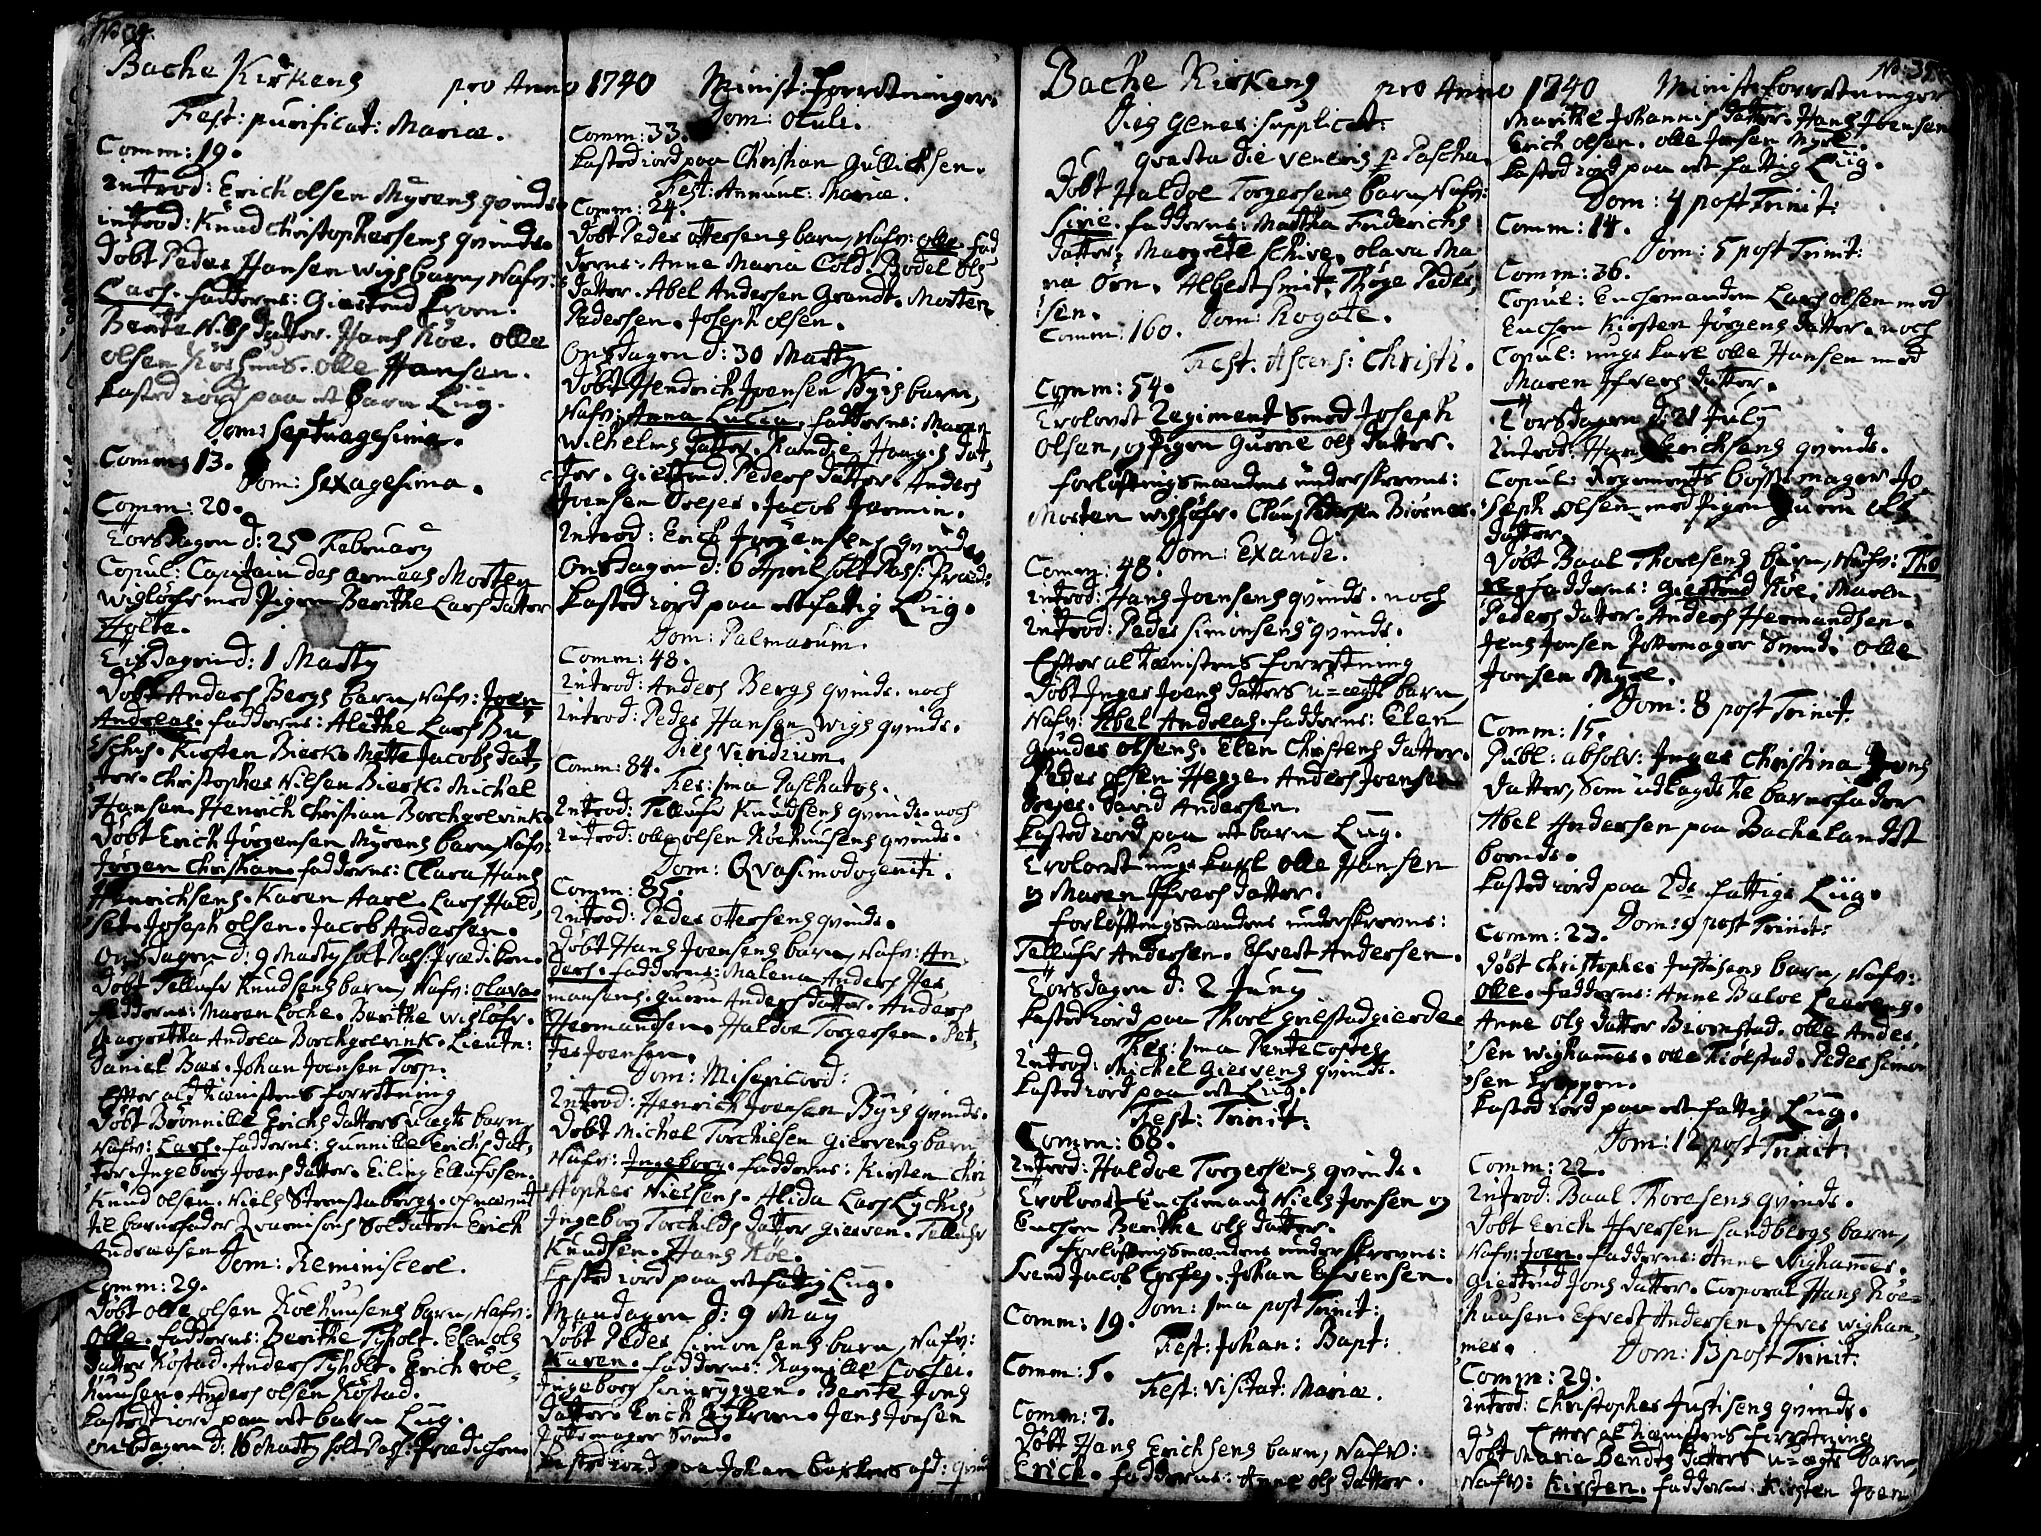 No 34.
Bache Kirkens pro Anno 1740 Minist: forretninger:
Fest: purificat: Mariæ.
Comm: 19.
Introd: Erich olsen Myrens qvinde.
introd: Knud Christophersens qvinde.
Døbt Peder Hansen Wigs barn, Nafv:
Lars. fadderne: Giertrud Croen.
Berite Nils datter. Hans Röe. olle
olsen Röehuus. olle Hansen.
Kasted iord paa et barn Liig.
Dom: Septuagesima.
Comm: 13.
Dom: Sexagesima.
Comm: 20.
Torsdagen d: 25 February
Copul: Capitain des armees Morten
Wigløfs med Pigen Berithe Lars datter
Holte.
Tirsdagen d: 1 Marty
Døbt Anders Bergs barn, Nafv: Joen
Andreas. fadderne: Alethe Lars Bu
schis. Kirsten Bierk. Mette Jacobs dat,
ter. Christopher Nilsen Bierk. Michel
Hansen. Henrich Christian Borchgrevink.
Døbt Erich Jørgensen Myrens barn, Nafv:
Jørgen Christian. fadderne: Clara Hans
Henrichsens. Karen Aarl. Lars Hald,
set. Joseph olsen. Jacob Andersen.
Onsdagen d: 9 Marty holt Pass: Prædiken.
Døbt Tellufs Knudsens barn, Nafv: olava.
fadderne: Maren Locke. Berithe Wigløfs.
Margretha Andrea Borchgrevink. Lieutn:
Daniel Bær. Johan Joensen Torp.
Efter al tienistens forretning
Døbt Brønnille Erichs datters u-ægte barn,
Nafv: Lars. fadderne: Gunnille Erichs dat,
ter. Ingeborg Joens datter. Eiling Ellufsen.
Knud olsen. Niels Steenstaberg. opnævnt
til barnefader Qvarnisons Soldaten Erich
Andræsen.
Dom: Reminiscere.
Comm: 29.
Døbt olle olsen Röehuusens barn, Nafv:
Olle. fadderne: Berithe Tyholt. Elen ols
datter Röstad. Anders Tyholt. Erich röe=
huusen. Anders olsen Röstad.
Kasted iord paa et barn Liig.
onsdagen d: 16 Marty holt Pass: Prædichen.
Dom: Oculi.
Comm: 33.
Kasted iord paa Christian Gullichsen.
Fest: Annunc: Mariæ.
Comm: 24.
Døbt Peder ottersens barn, Nafv: olle. fad
derne: Anne Maria Cold. Bodel ols
datter. Abel Andersen Grandt. Morten
Pedersen. Joseph olsen.
Onsdagen d: 30 Marty
Døbt Hendrich Joensen Byes barn,
Nafv: Anna Lucia. fadderne: Maren
Wilhelms datter. Randie Haagis dat,
ter. Giertrud Peders datter. Anders
Joensen Seejer. Jacob Jermin.
Introd: Erich Jørgensens qvinde
Onsdagen d: 6 April holt Pass: Præd:
Kasted iord paa et fattig Liig.
Dom: Palmarum.
Comm: 48.
Introd: Anders Bergs qvinde. noch
Introd: Peder Hansen Wigs qvinde.
Dies Viridium.
Comm: 84.
Fer: 1ma Paschatos.
Introd: Tellufs Knudsens qvinde. noch
Introd: olle olsen Röehuusens qvinde.
Dom: Qvasimodogeniti.
Comm: 85.
Introd: Peder ottersens qvinde.
Døbt Hans Joensens barn, Nafv: An
ders. fadderne: Malena Anders Her
mansens. Guren Anders datter. Anders
Hermandsen. Haldoe Torgersen. Pet,
ter Joensen.
Dom: Misericord:
Introd: Henrich Joensen Byes qvinde.
Døbt Michel Torchielsen Giervens barn
Nafv: Ingeborg. fadderne: Kirsten Chri
stopher Nielsens. Alida Lars Lychis,
Ingeborg Torchilds datter Gierven. Tellufs
Knudsen. Hans Röe.
Kasted iord paa et fattig Liig.
Mandagen d: 9 May
Døbt Peder Simonsens barn, Nafv:
Karen. fadderne: Ragnille Corser.
Ingeborg Svinryggen. Berite Jons
datter. Erich Bykroen. Jens Joensen
Pottemager Svend.
Kasted iord paa Johan beckers afd: qvinde
No: 35.
Bache Kirkens pro Anno 1740 Minist: forretninger
Dies Gener: Supplicat:
qvarta die Veneris p Pascha.
Døbt Haldoe Torgersens barn, Nafv:
Sirie. fadderne: Martha Friderichs
datter. Margrete Schive. olava Ma
ria Örn. Albert Smit. Thøge Peder,
sen.
Dom: Rogate.
Comm: 160.
Fest: Ascens: Christi.
Comm: 54.
Trolovet Regiment Smed Joseph
Olsen, og Pigen Gurrie ols datter.
forløftningsmændene underskrevne:
Morten wigløfs. Claus Petersen Biørnes.
Dom: Exaudi.
Comm: 48.
Introd: Hans Joensens qvinde. noch
Introd: Peder Simonsens qvinde.
Efter al tienistens forretning
Døbt Inger Joens datters u=ægte barn,
Nafv: Abel Andreas. fadderne: Elen
Gunder olsens. Elen Christens datter.
Peder olsen Hegge. Anders Joensen
Seejer. David Andersen.
Kasted iord paa et barn Liig.
Trolovet unge karl Olle Hansen
og Maren Ifvers datter.
forløftningsmændene underskrevne:
Tellufs Andersen. Efvert Andersen.
Torsdagen d: 2 Juny
Kasted iord paa Thore Grilstadgierdet
Fer: 1ma Pentecostes
Introd: Michel Giervens qvinde.
Kasted iord paa et Liig.
Fest: Trinit:
Comm: 68.
Introd: Haldoe Torgersens qvinde.
Trolovet Enchemand Niels Jonsen og
Enchen Berithe ols datter.
forløftningsmændene underskrevne:
Svend Jacob Corser. Johan Efvensen.
Dom: 1ma post Trinit:
Comm: 19.
Fest: Johan: Bapt:
Comm: 5.
Fest: Visitat: Mariæ.
Comm: 7.
Døbt Hans Erichsens barn, Nafv:
Erich. fadderne: Anne ols datter.
Marithe Johannis datter. Hans Joensen
Erich olsen. olle Jonsen Myre.
Kasted iord paa et fattig Liig.
Dom: 4 post Trinit:
Comm: 14.
Dom: 5 post Trinit:
Comm: 36.
Copul: Enchemanden Lars olsen med
Enchen Kirsten Jørgens datter. noch
Copul: unge karl olle Hansen med
Maren Ifvers datter.
Torsdagen d: 21 July
Introd: Hans Erichsens qvinde.
Copul: Regiments bössemager Jo
seph Olsen med Pigen Guru ols
datter.
Døbt Baal Thoresens barn, Nafv: Tho
re. fadderne: Giertrud Röe. Maren
Peders datter. Anders Hermandsen.
Jens Jonsen Pottemager Svend. olle
Jonsen Myre.
Dom: 8 post Trinit:
Comm: 15.
Publ: absolv: Inger Christina Joens
datter, som udlagde til barnefader
Abel Andersen paa Bachelandet
boende.
Kasted iord paa 2de fattige Liig.
Dom: 9 post Trinit:
Comm: 23.
Døbt Christopher Justisens barn, Nafv:
Olle. fadderne: Anne Baloe Leereng.
Anne ols datter Biørnstad. olle Ander,
sen Wighammer. olle Kiölstad. Peder Simon
sen Kroppen.
Kasted iord paa et fattig Liig.
Dom: 12 post Trinit:
Comm: 22.
Introd: Baal Thoresens qvinde.
Døbt Erich Ifversen Sandbergs barn,
Nafv: Joen. fadderne: Anne Wighammer.
Giertrud Jons datter. Corporal Hans Röe=
huusen. Efvert Andersen. Ifver Wigham,
mer.
Dom: 13 post Trinit:
Comm: 29.
Introd: Christopher Justisens qvinde.
Efter al tienistens forretning
Døbt Maria Bendts datters u=ægte barn,
Nafv: Kirsten. fadderne: Kirsten Joen